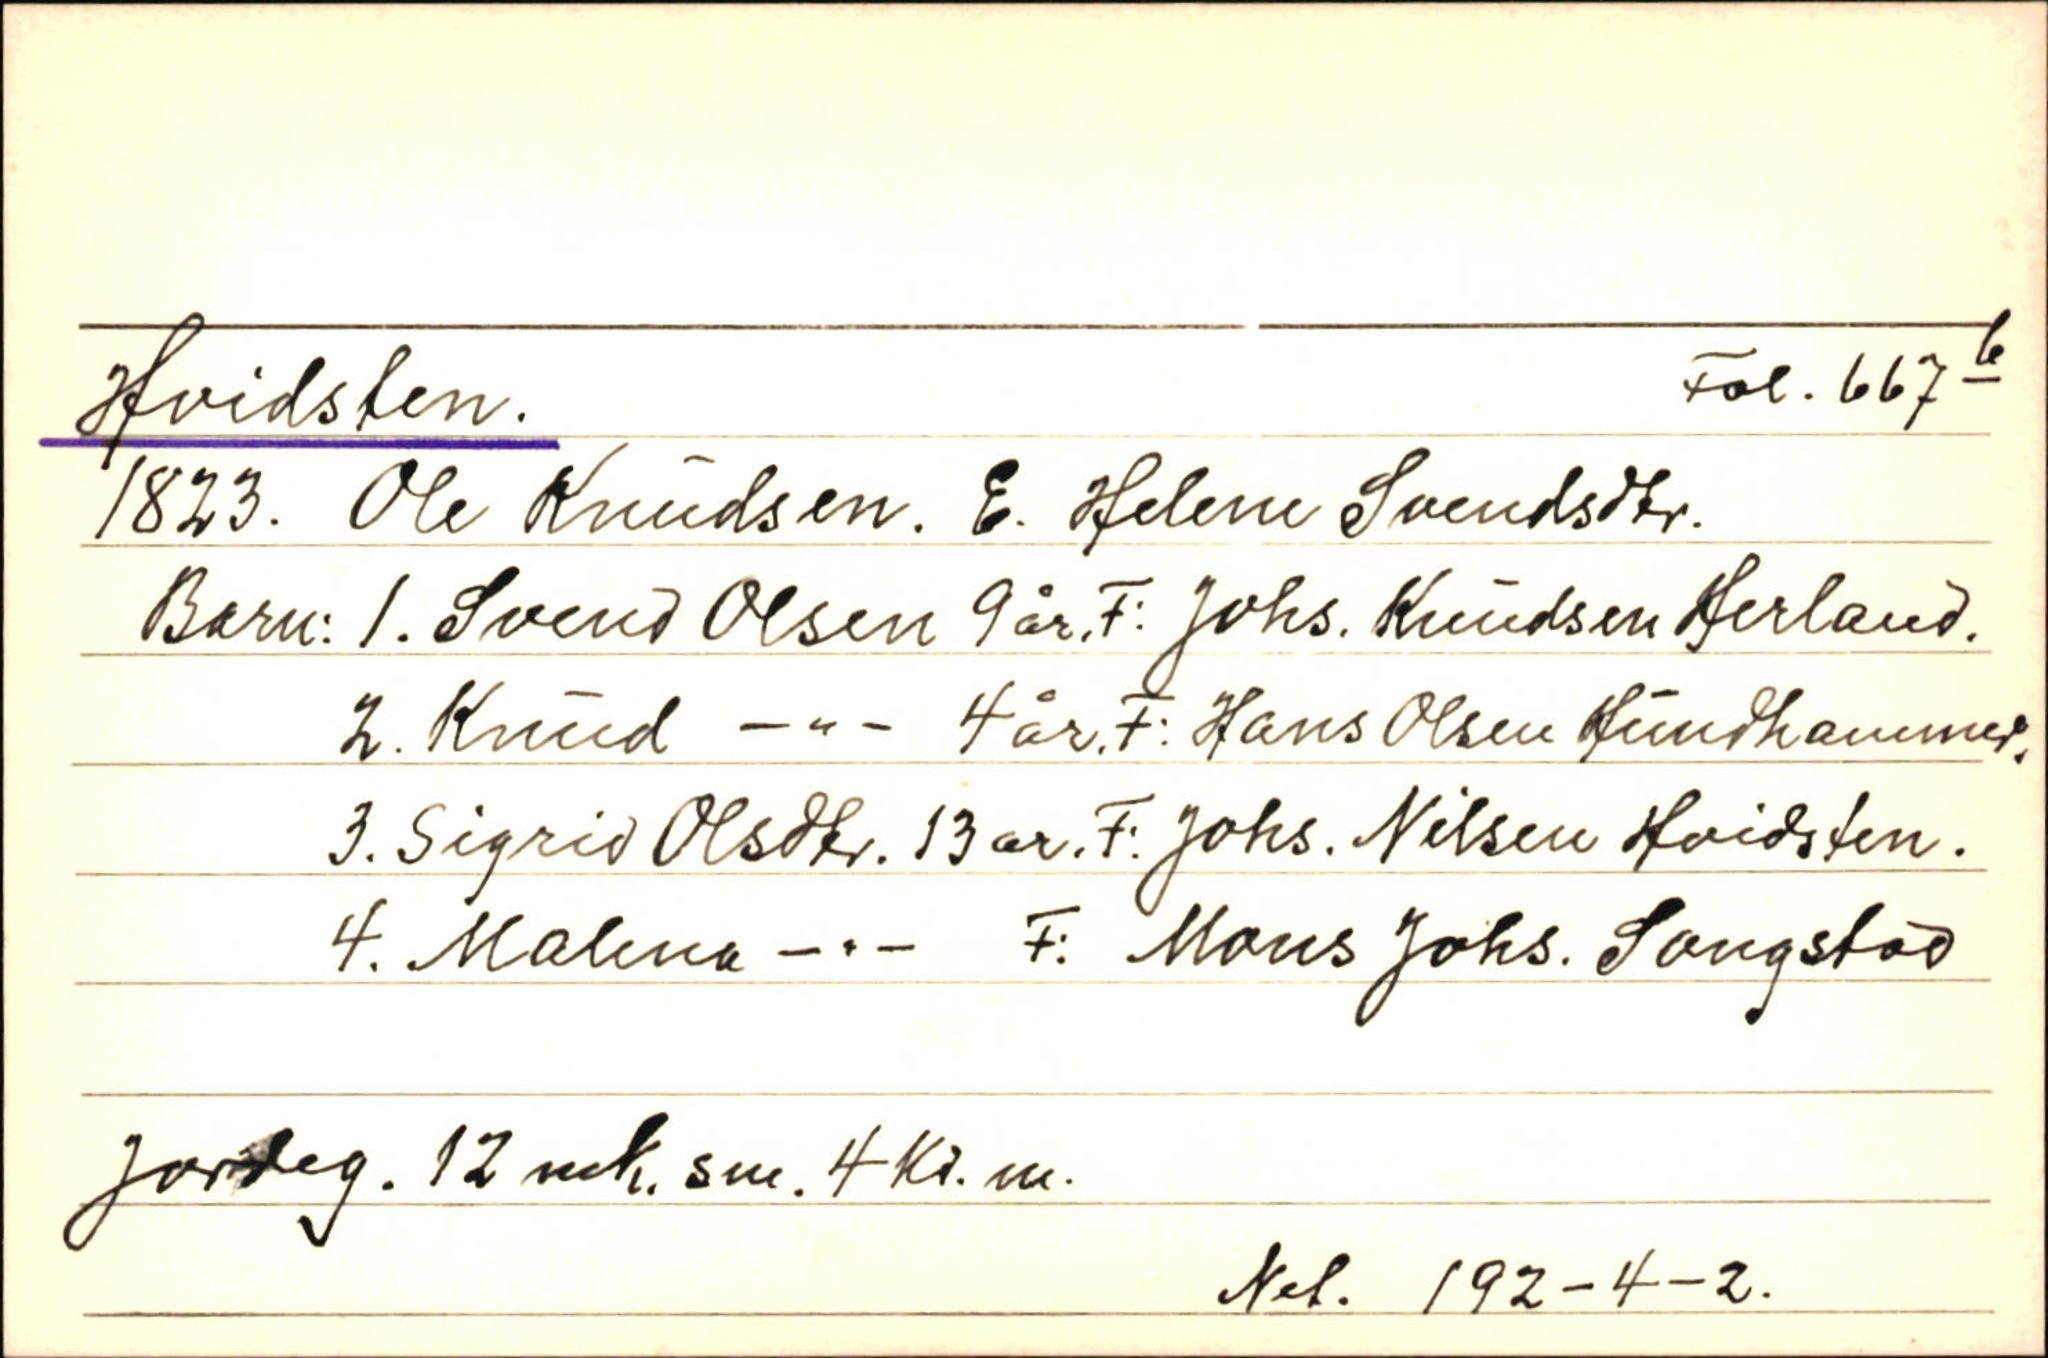 Hvidsten. Fol. 667 b
1823. Ole Knudsen. E. Helene Svendsdtr.
Barn: 1. Svend Olsen 9 år. F: Johs. Knudsen Herland.
2. Knud -"- 4 år. F: Hans Olsen Hundhammer.
3. Sigrid Olsdtr. 13 ar. F: Johs. Nilsen Hvidsten.
4. Malena -"- F: Mons Johs. Songstad
Jordeg. 12 mk. sm. 4 Kr. m.
Net. 192-4-2.